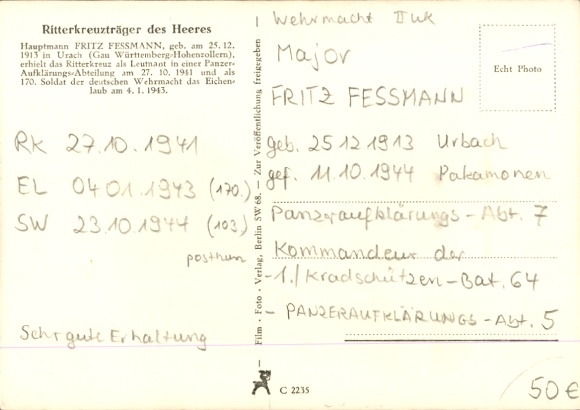 Ritterkreuzträger des Heeres
Hauptmann FRITZ FESSMANN, geb. am 25. 12.
1913 in Urach (Gau Württemberg-Hohenzollern),
erhielt das Ritterkreuz als Leutnant in einer Panzer-
Aufklärungs-Abteilung am 27. 10. 1941 und als
170. Soldat der deutschen Wehrmacht das Eichen-
laub am 4. 1. 1943.
RK 27.10.1941
EL 04 01.1943 (170.)
SW 23.10.1944 (103.)
posthum
Sehr gute Erhaltung
Film - Foto - Verlag, Berlin SW 68. — Zur Veröffentlichung freigegeben
Wehrmacht II WK
Major
FRITZ FESSMANN
geb. 25 12 1913 Urbach
gef. 11.10.1944 Pakamonen
Panzeraufklärungs - Abt. 7
Kommandeur der
-1./Kradschützen-Bat. 64
- PANZERAUFKLÄRUNGS - Abt. 5
Echt Photo
C 2235
50€